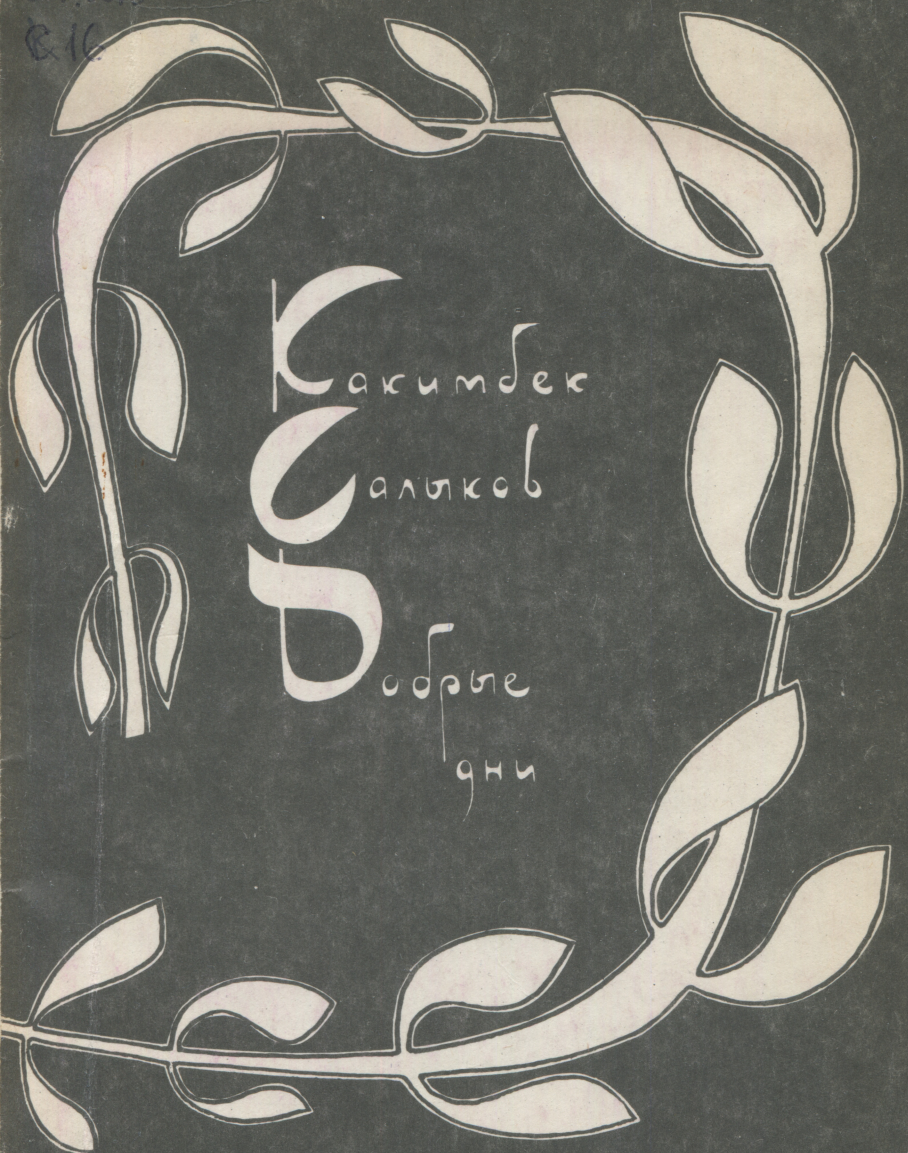 С 16
Какимбек
Салыков
Добрые
дни